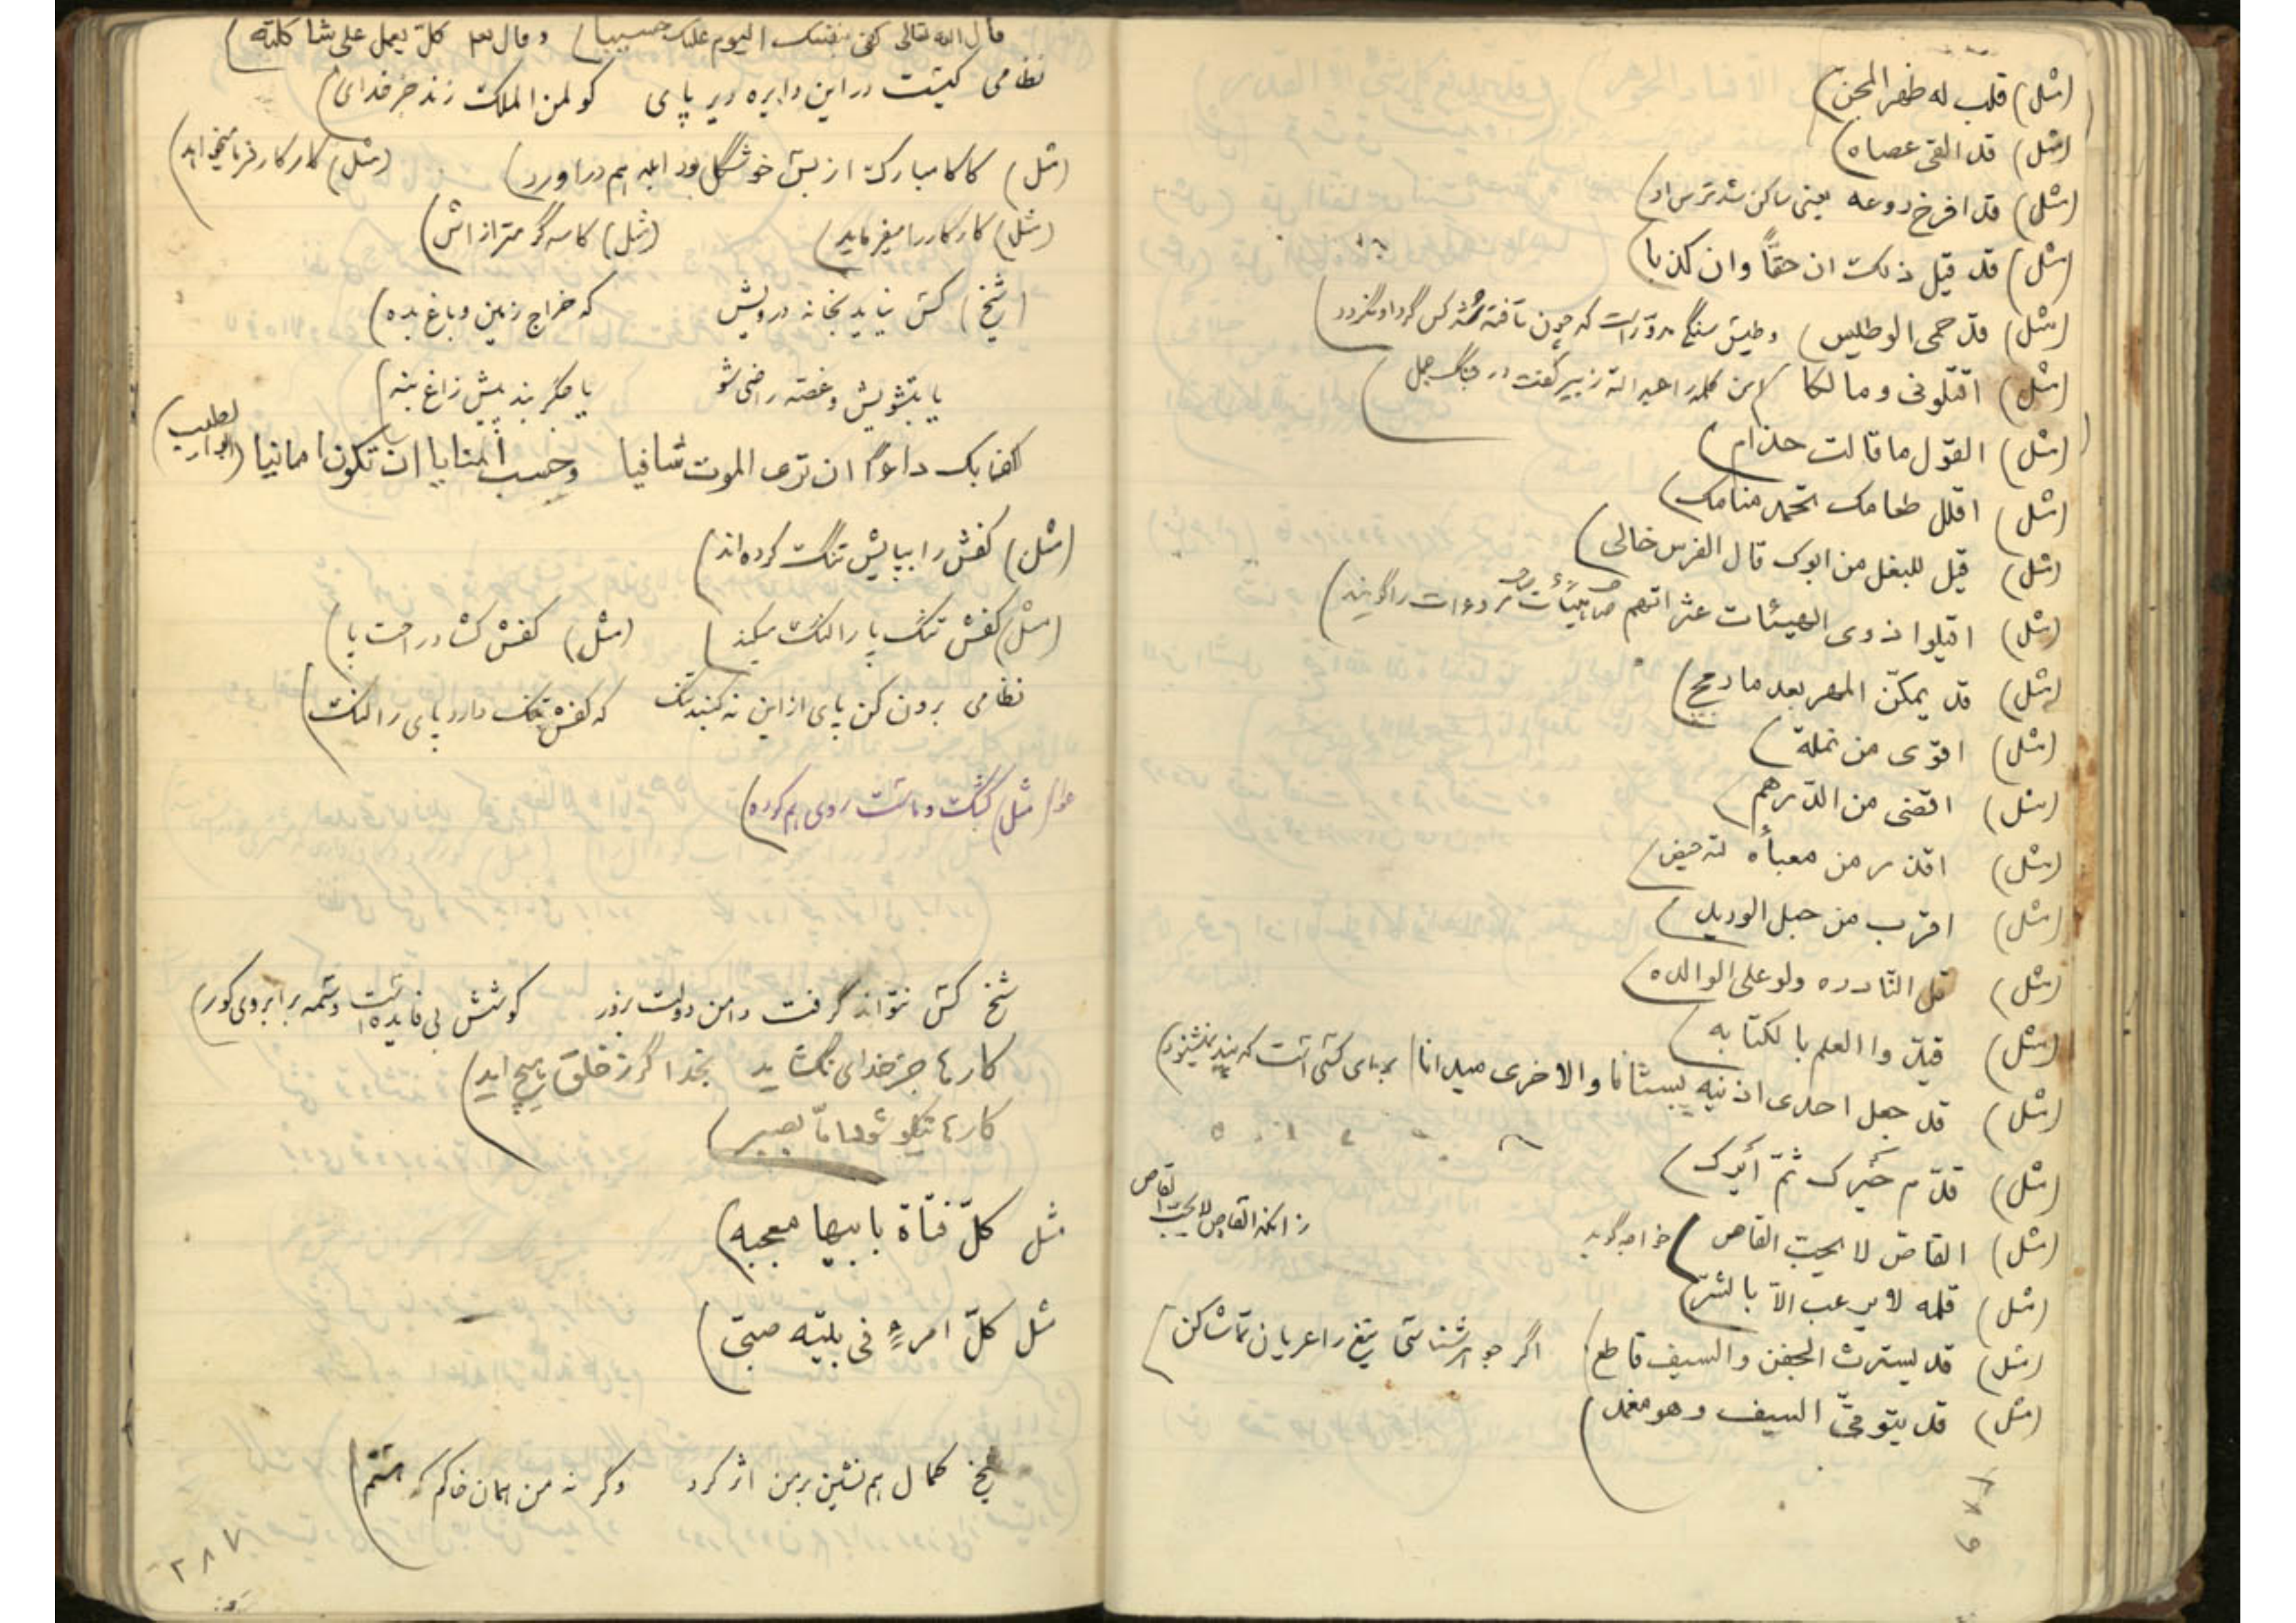 (مثل) قلب له ظهر المجن
(مثل) قد القی عصاه
(مثل) قد افرخ روعه یعنی ساکن شد ترس او
(مثل) قد قیل ذلک ان حقّاً وان کذبا
(مثل) قد حمی الوطیس وطیس سنگی مدوّر است که چون تافته شد کس گرد او نگردد
(مثل) اقتلونی ومالکا این کلمه را عبدالله زبیر گفت در جنگ جمل
(مثل) القول ما قالت حذام
(مثل) اقلل طعامک تحمد منامک
(مثل) قیل للبغل من ابوک قال الفرس خالی
(مثل) اقیلوا ذوی الهیئات عثراتهم
(مثل) قد یمکّن المهر بعد ما رمح
(مثل) اقوی من نملة
(مثل) اقضی من الدّرهم
(مثل) اقذر من معبأه
(مثل) اقرب من حبل الورید
(مثل) قل النّادره ولو علی الوالده
(مثل) قیّدوا العلم بالکتابه
(مثل) قد جعل احدی اذنیه بستانا والاخری میدانا بجای کسی است که پند نشنود
(مثل) قدّم خیرک ثمّ أیرک
(مثل) القاصّ لا یحبّ القاص خواجه گوید
زانکه القاص لا یحبّ القاص
(مثل) قلمه لا یرعب الاّ بالشرّ
(مثل) قد یسترث الجفن والسیف قاطع اگر جوهرشناسی تیغ را عریان تماشا کن
(مثل) قد یتوقّی السیف وهو مغمد
۲۸۶
قال الله تعالی کفی بنفسک الیوم علیک حسیبا وقال تع کلّ یعمل علی شاکلته
نظامی کیست در این دایره دیر پای کو لمن الملک زند جز خدای
(مثل) کاکا مبارک از بس خوشگل بود ابله هم دراورد (مثل) کار کارفرما میخواهد
(مثل) کار کار را میفرماید (مثل) کاسه گرمتر از اش
(شیخ) کس نیاید بخانه درویش که خراج زمین و باغ بده
یا بتشویش و غصّه راضی شو یا جگربند پیش زاغ بنه
کفا بک داءً ان تری الموت شافیا وحسب المنایا ان تکون امانیا (ابو الطیب)
(مثل) کفش را بپایش تنگ کرده اند
(مثل) کفش تنگ پا را لنگ میکند (مثل) کفش گشاد راحت پا
نظامی برون کن پای از این نه گنبد تنگ که کفش تنگ دارد پای را لنگ
مثل کشک و ماست روی هم کرده
شیخ کس نتواند گرفت دامن دولت بزور کوشش بی فایده است وسمه بر ابروی کور
کارها جز خدای نگشاید بخدا گر ز خلق هیچ اید
کارها نیکو شود امّا بصبر
مثل کلّ فتاة بابیها معجبه
مثل کلّ امرءٍ فی بیته صبیّ
شیخ کمال هم نشین بر من اثر کرد وگر نه من همان خاکم که هستم
۲۸۷